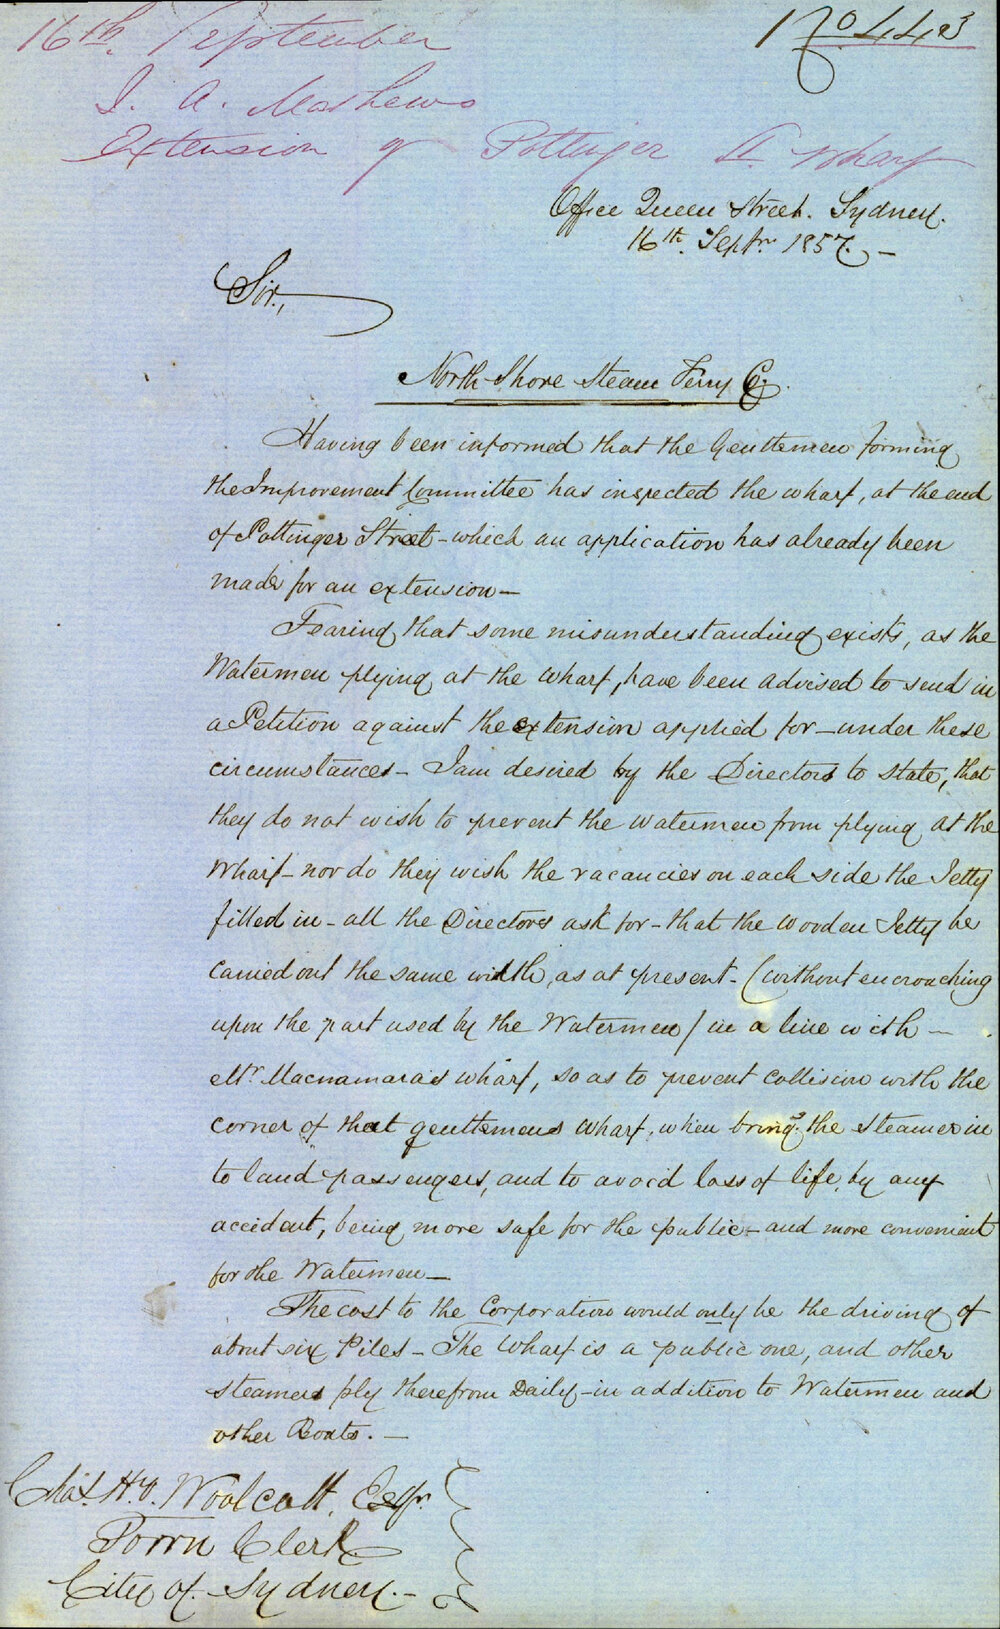 16th September
No 443
J. A. Mathews
Extension of Pottinger St. Wharf
Office Queen Street. Sydney.
16th Septr 1857. —
Sir,
North Shore Steam Ferry Co.
Having been informed that the Gentlemen forming
the Improvement Committee has inspected the wharf, at the end
of Pottinger Street - which an application has already been
made for an extension —
Fearing that some misunderstanding exists, as the
Watermen plying at the wharf, have been advised to send in
a Petition against the extension applied for - under these
circumstances - I am desired by the Directors to state, that
they do not wish to prevent the watermen from plying at the
Wharf - nor do they wish the vacancies on each side the Jetty
filled in - all the Directors ask for - that the wooden Jetty be
carried out the same width, as at present - (without encroaching
upon the part used by the Watermen) in a line with —
Mr. Macnamara's wharf, so as to prevent collision with the
corner of that gentlemens wharf, when bring.g the steamer in
to land passengers, and to avoid loss of life, by any
accident, being more safe for the public - and more convenient
for the Watermen —
The cost to the Corporation would only be the driving of
about six Piles - The Wharf is a public one, and other
steamers ply therefrom Daily - in addition to Watermen and
other Boats. —
Chas. Hy. Woolcott, Esqr.
Town Clerk
City of Sydney. —